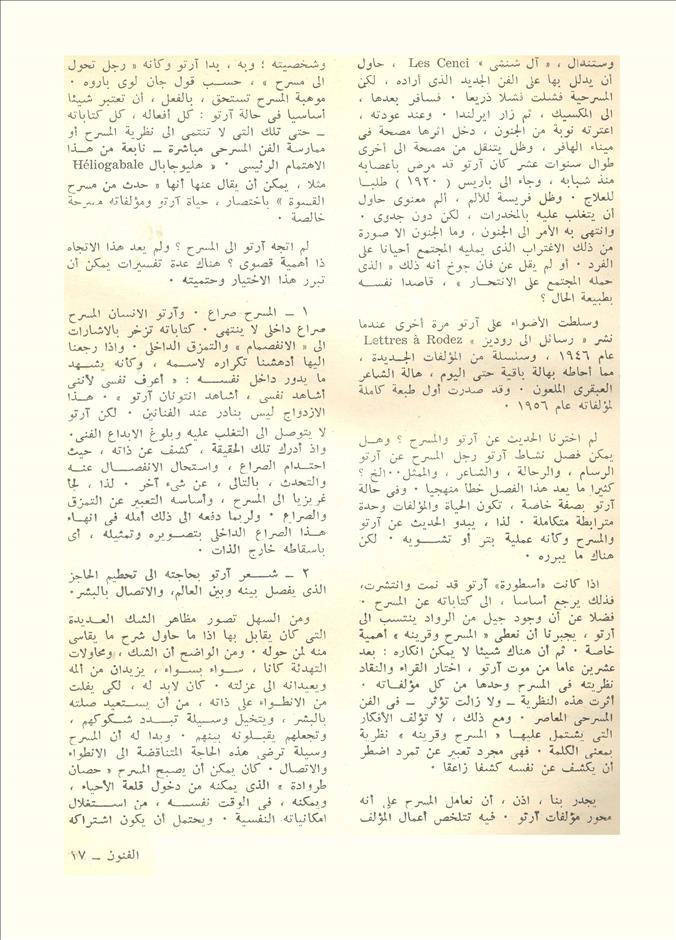 وستندال ، « آل شنشى » Les Cenci ، حاول
أن يدلل بها على الفن الجديد الذى أراده ، لكن
المسرحية فشلت فشلا ذريعا ٠ فسافر بعدها ،
الى المكسيك ، ثم زار ايرلندا ٠ وعند عودته ،
اعترته نوبة من الجنون ، دخل اثرها مصحة فى
ميناء الهافر ، وظل يتنقل من مصحة الى أخرى
طوال سنوات عشر كان آرتو قد مرض بأعصابه
منذ شبابه ، وجاء الى باريس ( ١٩٢٠ ) طلبا
للعلاج ٠ وظل فريسة للألم ، ألم معنوى حاول
أن يتغلب عليه بالمخدرات ، لكن دون جدوى ٠
وانتهى به الأمر الى الجنون ، وما الجنون الا صورة
من ذلك الاغتراب الذى يمليه المجتمع أحيانا على
الفرد ٠ أو لم يقل عن فان جوخ أنه ذلك « الذى
حمله المجتمع على الانتحار » ، قاصدا نفسه
بطبيعة الحال ؟
وسلطت الأضواء على آرتو مرة أخرى عندما
نشر « رسائل الى روديز » Lettres à Rodez
عام ١٩٤٦ ، وسلسلة من المؤلفات الجديدة ،
مما أحاطه بهالة باقية حتى اليوم ، هالة الشاعر
العبقرى الملعون ٠ وقد صدرت أول طبعة كاملة
لمؤلفاته عام ١٩٥٦ ٠
لم اخترنا الحديث عن آرتو والمسرح ؟ وهل
يمكن فصل نشاط آرتو رجل المسرح عن آرتو
الرسام ، والرحالة ، والشاعر ، والممثل٠٠الخ ؟
كثيرا ما يعد هذا الفصل خطأ منهجيا ٠ وفى حالة
آرتو بصفة خاصة ، تكون الحياة والمؤلفات وحدة
مترابطة متكاملة ٠ لذا ، يبدو الحديث عن آرتو
والمسرح وكأنه عملية بتر أو تشويه ٠ لكن
هناك ما يبرره ٠
اذا كانت «أسطورة» آرتو قد نمت وانتشرت،
فذلك يرجع أساسا ، الى كتاباته عن المسرح ٠
فضلا عن أن وجود جيل من الرواد ينتسب الى
آرتو ، يجبرنا أن نعطى « المسرح وقرينه » أهمية
خاصة ٠ ثم أن هناك شيئا لا يمكن انكاره : بعد
عشرين عاما من موت آرتو ، اختار القراء والنقاد
نظريته فى المسرح وحدها من كل مؤلفاته ٠
أثرت هذه النظرية ــ ولا زالت تؤثر ــ فى الفن
المسرحى المعاصر ٠ ومع ذلك ، لا تؤلف الأفكار
التى يشتمل عليها « المسرح وقرينه » نظرية
بمعنى الكلمة ٠ فهى مجرد تعبير عن تمرد اضطر
أن يكشف عن نفسه كشفا زاعقا ٠
يجدر بنا ، اذن ، أن نعامل المسرح على أنه
محور مؤلفات آرتو ٠ فيه تتلخص أعمال المؤلف
وشخصيته ؛ وبه ، بدا آرتو وكأنه « رجل تحول
الى مسرح » ، حسب قول جان لوى باروه ٠
موهبة المسرح تستحق ، بالفعل ، أن تعتبر شيئا
أساسيا فى حالة آرتو : كل أفعاله ، كل كتاباته
ــ حتى تلك التى لا تنتمى الى نظرية المسرح أو
ممارسة الفن المسرحى مباشرة ــ نابعة من هذا
الاهتمام الرئيسى ٠ « هليوجابال Héliogabale
مثلا ، يمكن أن يقال عنها أنها « حدث من مسرح
القسوة » باختصار ، حياة آرتو ومؤلفاته مسرحة
خالصة ٠
لم اتجه آرتو الى المسرح ؟ ولم يعد هذا الاتجاه
ذا أهمية قصوى ؟ هناك عدة تفسيرات يمكن أن
تبرر هذا الاختيار وحتميته ٠
١ ــ المسرح صراع ٠ وآرتو الانسان المسرح
صراع داخلى لا ينتهى ٠ كتاباته تزخر بالاشارات
الى «الانفصام» والتمزق الداخلى ٠ واذا رجعنا
اليها أدهشنا تكراره لاسمه ، وكأنه يشهد
ما يدور داخل نفسه : « أعرف نفسى لأننى
أشاهد نفسى ، أشاهد انتونان آرتو » ٠ هذا
الازدواج ليس بنادر عند الفنانين ٠ لكن آرتو
لا يتوصل الى التغلب عليه وبلوغ الابداع الفنى٠
واذ أدرك تلك الحقيقة ، كشف عن ذاته ، حيث
احتدام الصراع ، واستحال الانفصال عنه
والتحدث ، بالتالى ، عن شىء آخر ٠ لذا ، لجأ
غريزيا الى المسرح ، وأساسه التعبير عن التمزق
والصراع ٠ ولربما دفعه الى ذلك أمله فى انهاء
هذا الصراع الداخلى بتصويره وتمثيله ، أى
باسقاطه خارج الذات ٠
٢ ــ شعر آرتو بحاجته الى تحطيم الحاجز
الذى يفصل بينه وبين العالم، والاتصال بالبشر٠
ومن السهل تصور مظاهر الشك العديدة
التى كان يقابل بها اذا ما حاول شرح ما يقاسى
منه لمن حوله ٠ ومن الواضح أن الشك ، ومحاولات
التهدئة كانا ، سواء بسواء ، يزيدان من ألمه
ويعيدانه الى عزلته ٠ كان لابد له ، لكى يفلت
من الانطواء على ذاته ، من أن يستعيد صلته
بالبشر ، ويتخيل وسيلة تبدد شكوكهم ،
وتجعلهم يقبلونه بينهم ٠ وبدا له أن المسرح
وسيلة ترضى هذه الحاجة المتناقضة الى الانطواء
والاتصال ٠ كان يمكن أن يصبح المسرح « حصان
طروادة » الذى يمكنه من دخول قلعة الأحياء ،
ويمكنه ، فى الوقت نفسه ، من استغلال
امكانياته النفسية ٠ ويحتمل أن يكون اشتراكه
الفنون ــ ١٧